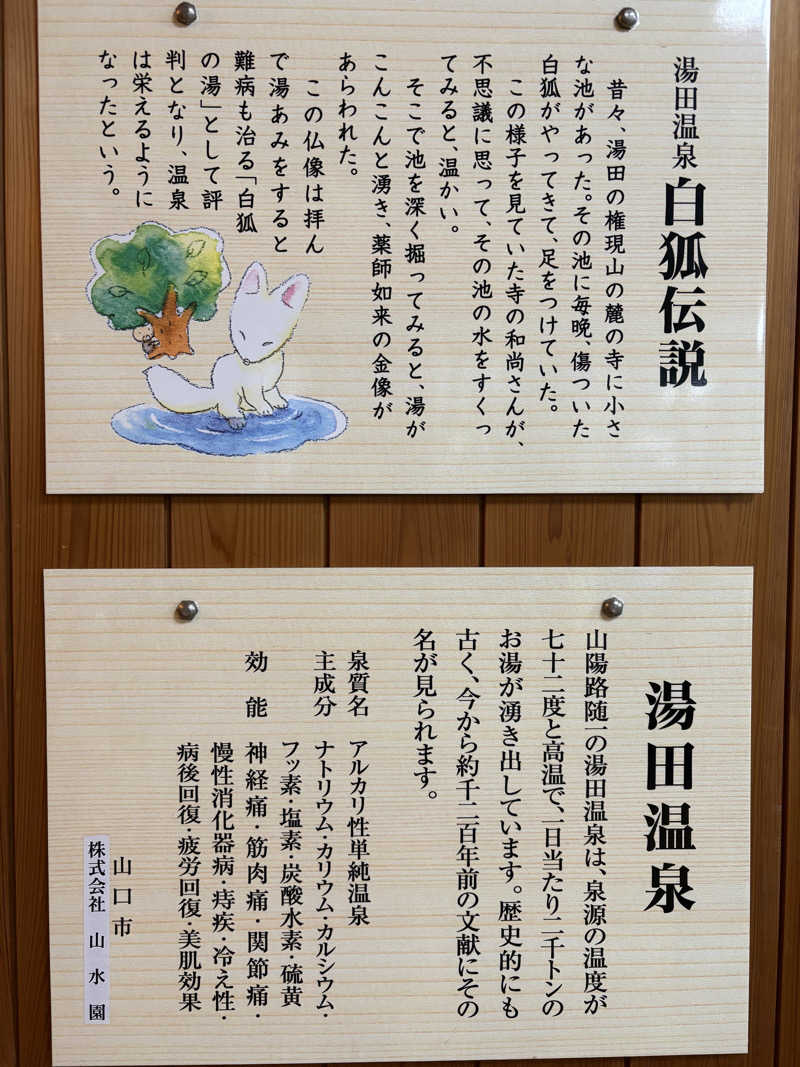 湯田温泉 白狐伝説
昔々、湯田の権現山の麓の寺に小さ
な池があった。その池に毎晩、傷ついた
白狐がやってきて、足をつけていた。
この様子を見ていた寺の和尚さんが、
不思議に思って、その池の水をすくっ
てみると、温かい。
そこで池を深く掘ってみると、湯が
こんこんと湧き、薬師如来の金像が
あらわれた。
この仏像は拝ん
で湯あみをすると
難病も治る「白狐
の湯」として評
判となり、温泉
は栄えるように
なったという。
湯田温泉
山陽路随一の湯田温泉は、泉源の温度が
七十二度と高温で、一日当たり二千トンの
お湯が湧き出しています。歴史的にも
古く、今から約千二百年前の文献にその
名が見られます。
泉質名 アルカリ性単純温泉
主成分 ナトリウム・カリウム・カルシウム・
フッ素・塩素・炭酸水素・硫黄
効 能 神経痛・筋肉痛・関節痛・
慢性消化器病・痔疾・冷え性・
病後回復・疲労回復・美肌効果
山口市
株式会社 山水園